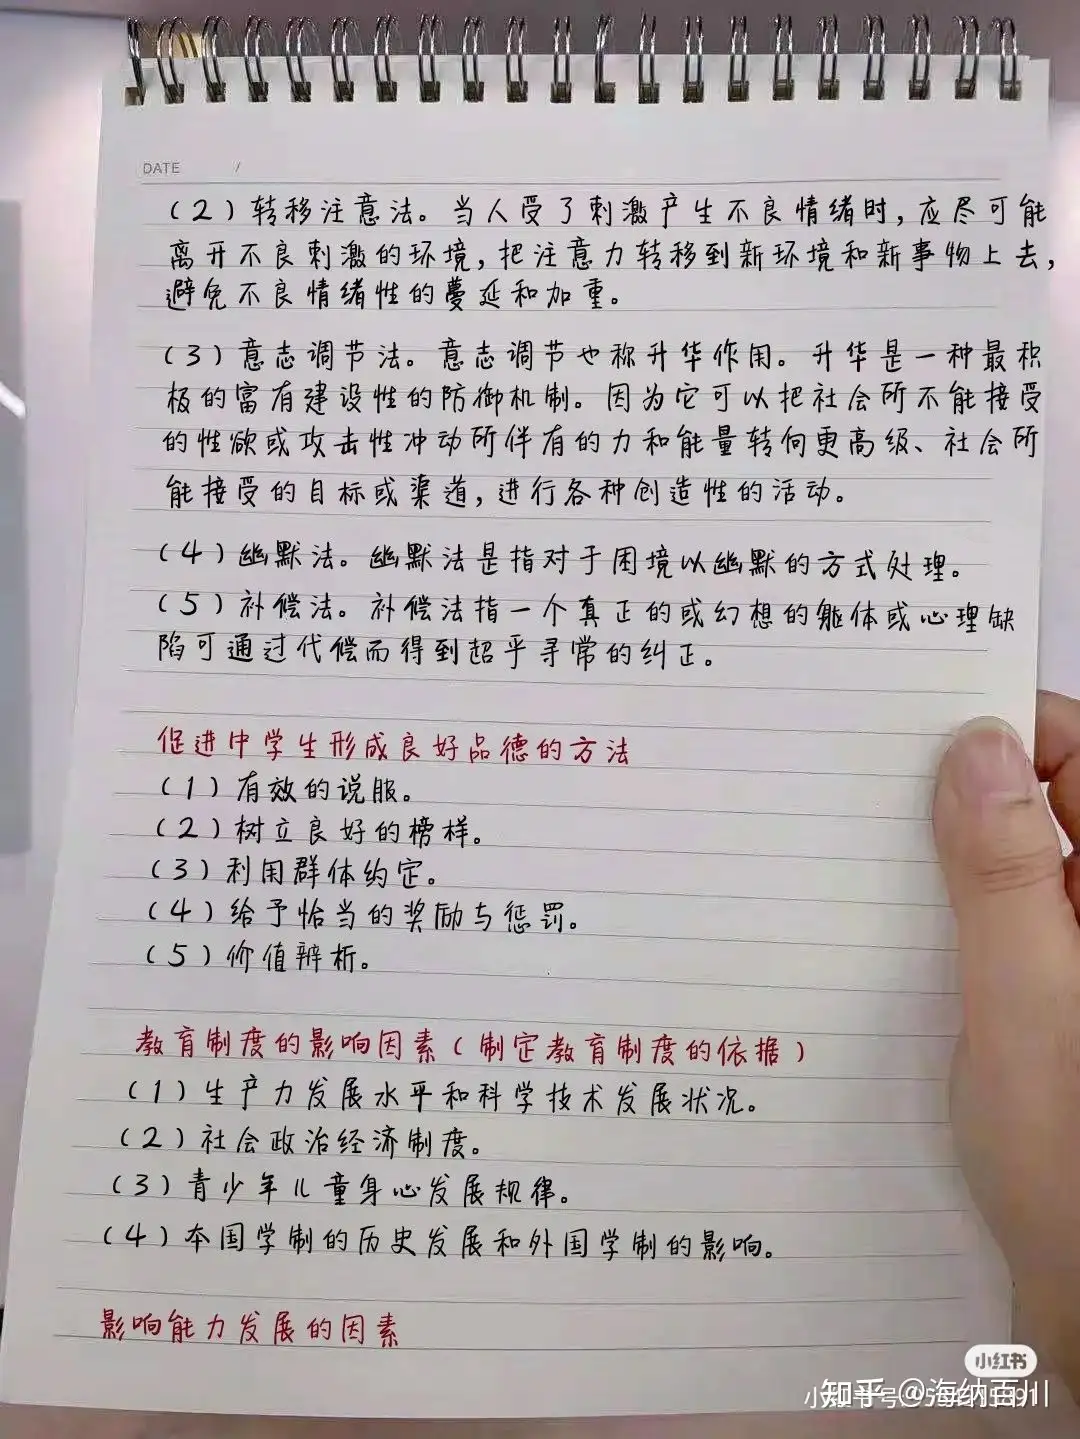 DATE /
（2）转移注意法。当人受了刺激产生不良情绪时，应尽可能
离开不良刺激的环境，把注意力转移到新环境和新事物上去，
避免不良情绪性的蔓延和加重。
（3）意志调节法。意志调节也称升华作用。升华是一种最积
极的富有建设性的防御机制。因为它可以把社会所不能接受
的性欲或攻击性冲动所伴有的力和能量转向更高级、社会所
能接受的目标或渠道，进行各种创造性的活动。
（4）幽默法。幽默法是指对于困境以幽默的方式处理。
（5）补偿法。补偿法指一个真正的或幻想的躯体或心理缺
陷可通过代偿而得到超乎寻常的纠正。
促进中学生形成良好品德的方法
（1）有效的说服。
（2）树立良好的榜样。
（3）利用群体约定。
（4）给予恰当的奖励与惩罚。
（5）价值辨析。
教育制度的影响因素（制定教育制度的依据）
（1）生产力发展水平和科学技术发展状况。
（2）社会政治经济制度。
（3）青少年儿童身心发展规律。
（4）本国学制的历史发展和外国学制的影响。
影响能力发展的因素
小红书
知乎 @海纳百川